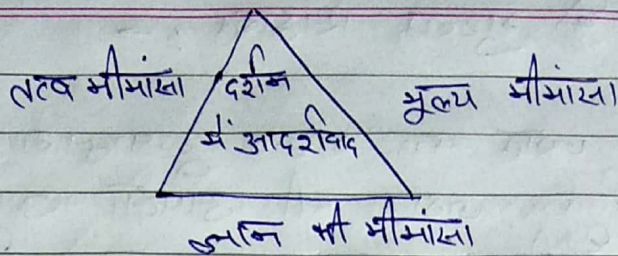 तत्व मीमांसा
दर्शन
में आदर्शवाद
मूल्य मीमांसा
ज्ञान की मीमांसा